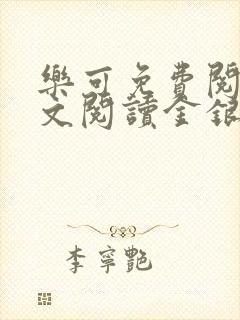 樂可免費閱
文閱讀金銀
李寧艷